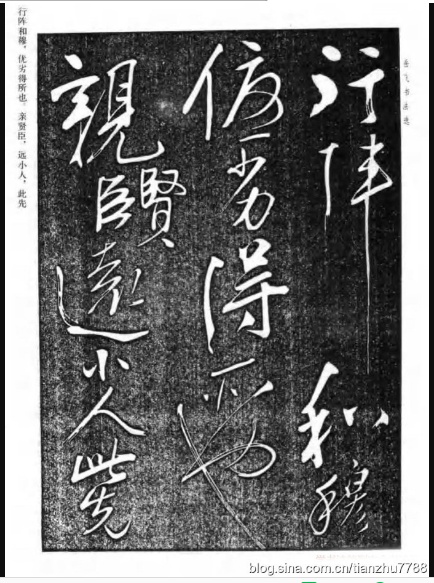 岳飞书法选
行陣和穆
優劣得所也
親賢臣遠小人此先
行阵和穆，优劣得所也。亲贤臣，远小人，此先
blog.sina.com.cn/tianzhu7788